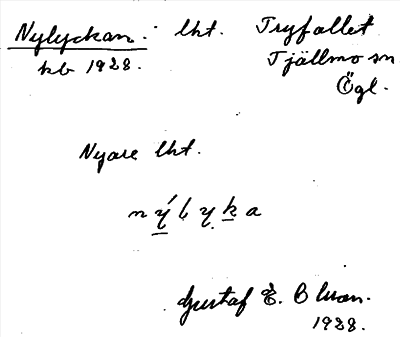 Nylyckan. lht. Tryfallet
kb 1928. Tjällmo sn
Ögl.
Nyare lht.
nýlyka
Gustaf E. Bluan.
1928.